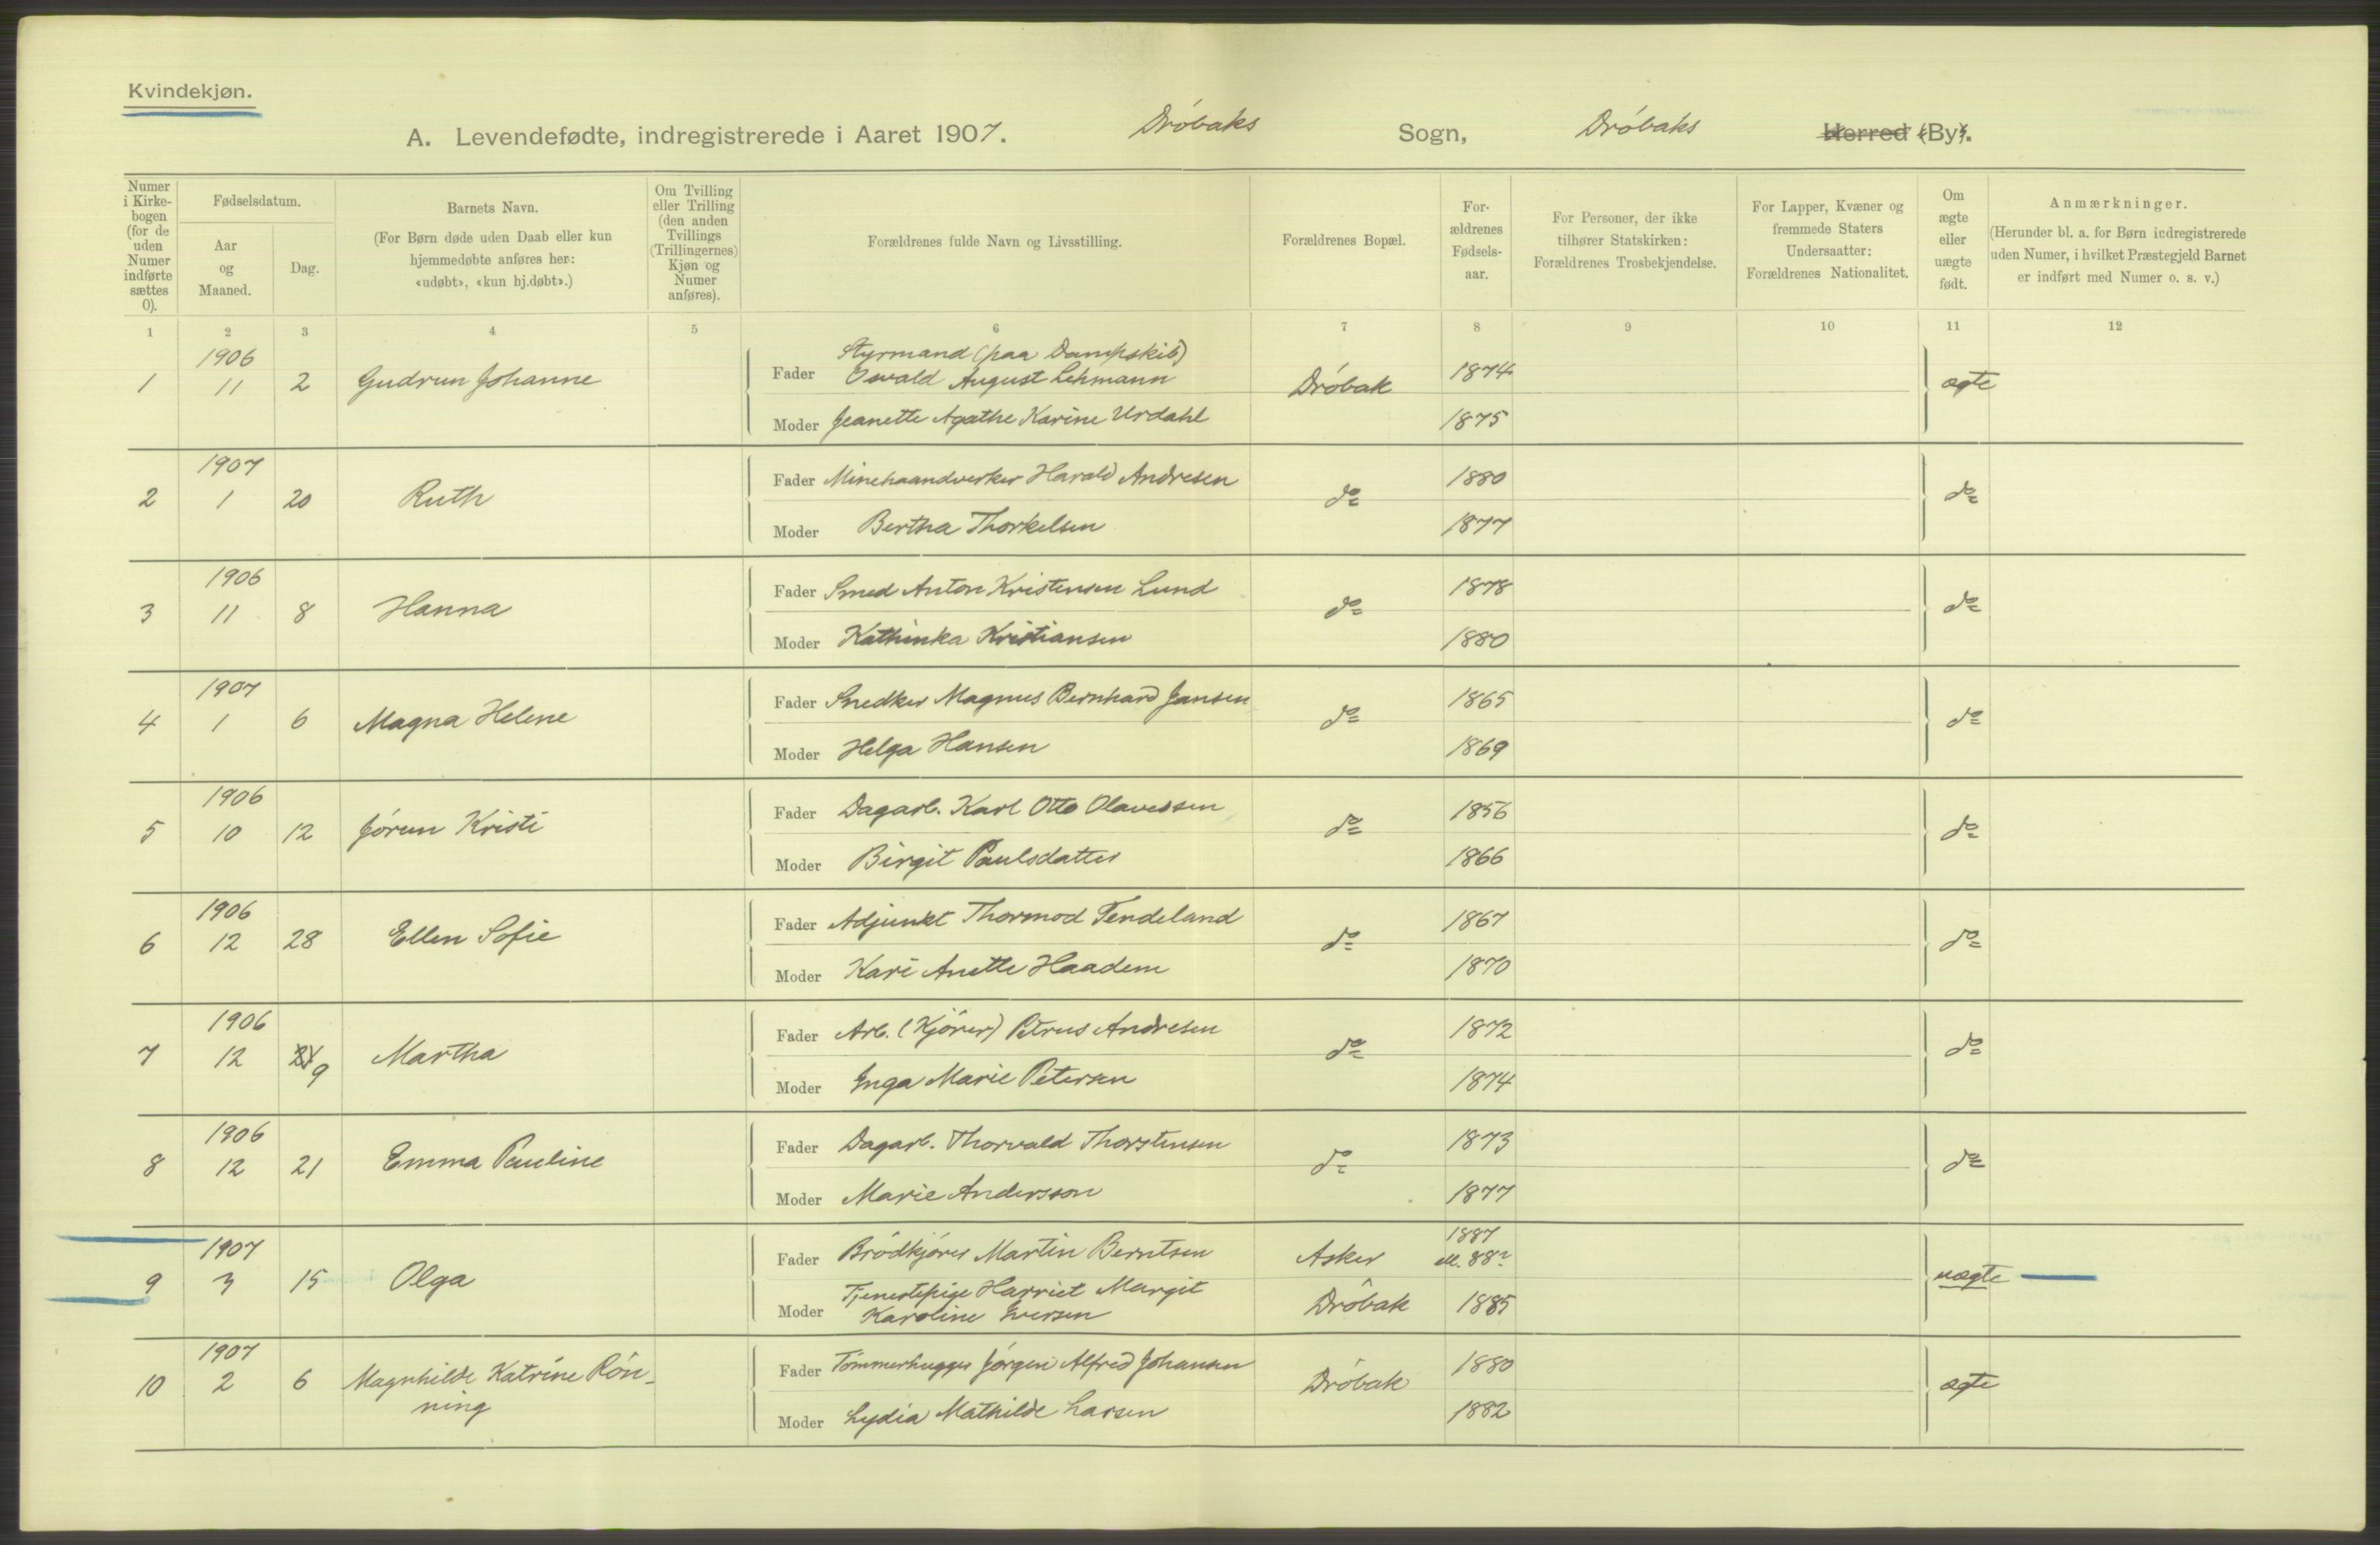 Kvindekjøn.
A. Levendefødte, indregistrerede i Aaret 1907. Drøbaks Sogn, Drøbaks Herred (By).
Numer i Kirke-bogen (for de uden Numer indførte sættes 0).
Fødselsdatum.
Aar og Maaned.
Dag.
Barnets Navn.
(For Børn døde uden Daab eller kun hjemmedøbte anføres her: «udøbt», «kun hj.døbt».)
Om Tvilling eller Trilling (den anden Tvillings (Trillingernes) Kjøn og Numer anføres).
Forældrenes fulde Navn og Livsstilling.
Forældrenes Bopæl.
For-ældrenes Fødsels-aar.
For Personer, der ikke tilhører Statskirken: Forældrenes Trosbekjendelse.
For Lapper, Kvæner og fremmede Staters Undersaatter: Forældrenes Nationalitet.
Om ægte eller uægte født.
Anmærkninger.
(Herunder bl. a. for Børn indregistrerede uden Numer, i hvilket Præstegjeld Barnet er indført med Numer o. s. v.)
1 2 3 4 5 6 7 8 9 10 11 12
1906 Styrmand (paa Dampskib)
1 11 2 Gudrun Johanne Fader Osvald August Lehmann Drøbak 1874 ægte
Moder Jeanette Agathe Karine Urdahl 1875
1907 Fader Minehaandverker Harald Andresen 1880
2 1 20 Ruth do do
Moder Bertha Thorkelsen 1877
1906 Fader Smed Anton Kristensen Lund 1878
3 11 8 Hanna do do
Moder Kathinka Kristiansen 1880
1907 Fader Snedker Magnus Bernhard Jansen 1865
4 1 6 Magna Helene do do
Moder Helga Hansen 1869
1906 Fader Dagarb. Karl Otto Olavessen 1856
5 10 12 Jórun Kristi do do
Moder Birgit Paulsdatter 1866
1906 Fader Adjunkt Thormod Tendeland 1867
6 12 28 Ellen Sofie do do
Moder Kari Anette Haadem 1870
1906 Fader Arb. (Kjører) Petrus Andresen 1872
7 12 21 9 Martha do do
Moder Inga Marie Petersen 1874
1906 Fader Dagarb. Thorvald Thorstensen 1873
8 12 21 Emma Pauline do do
Moder Marie Andersson 1877
1907 Fader Brødkjører Martin Berntsen Asker 1887 ell. 88?
9 3 15 Olga uægte
Tjenestepige Harriet Margit
Moder Karoline Iversen Drøbak 1885
1907 Fader Tømmerhugger Jørgen Alfred Johansen 1880
10 2 6 Magnhilde Katrine Røn- Drøbak ægte
ning Moder Lydia Mathilde Larsen 1882